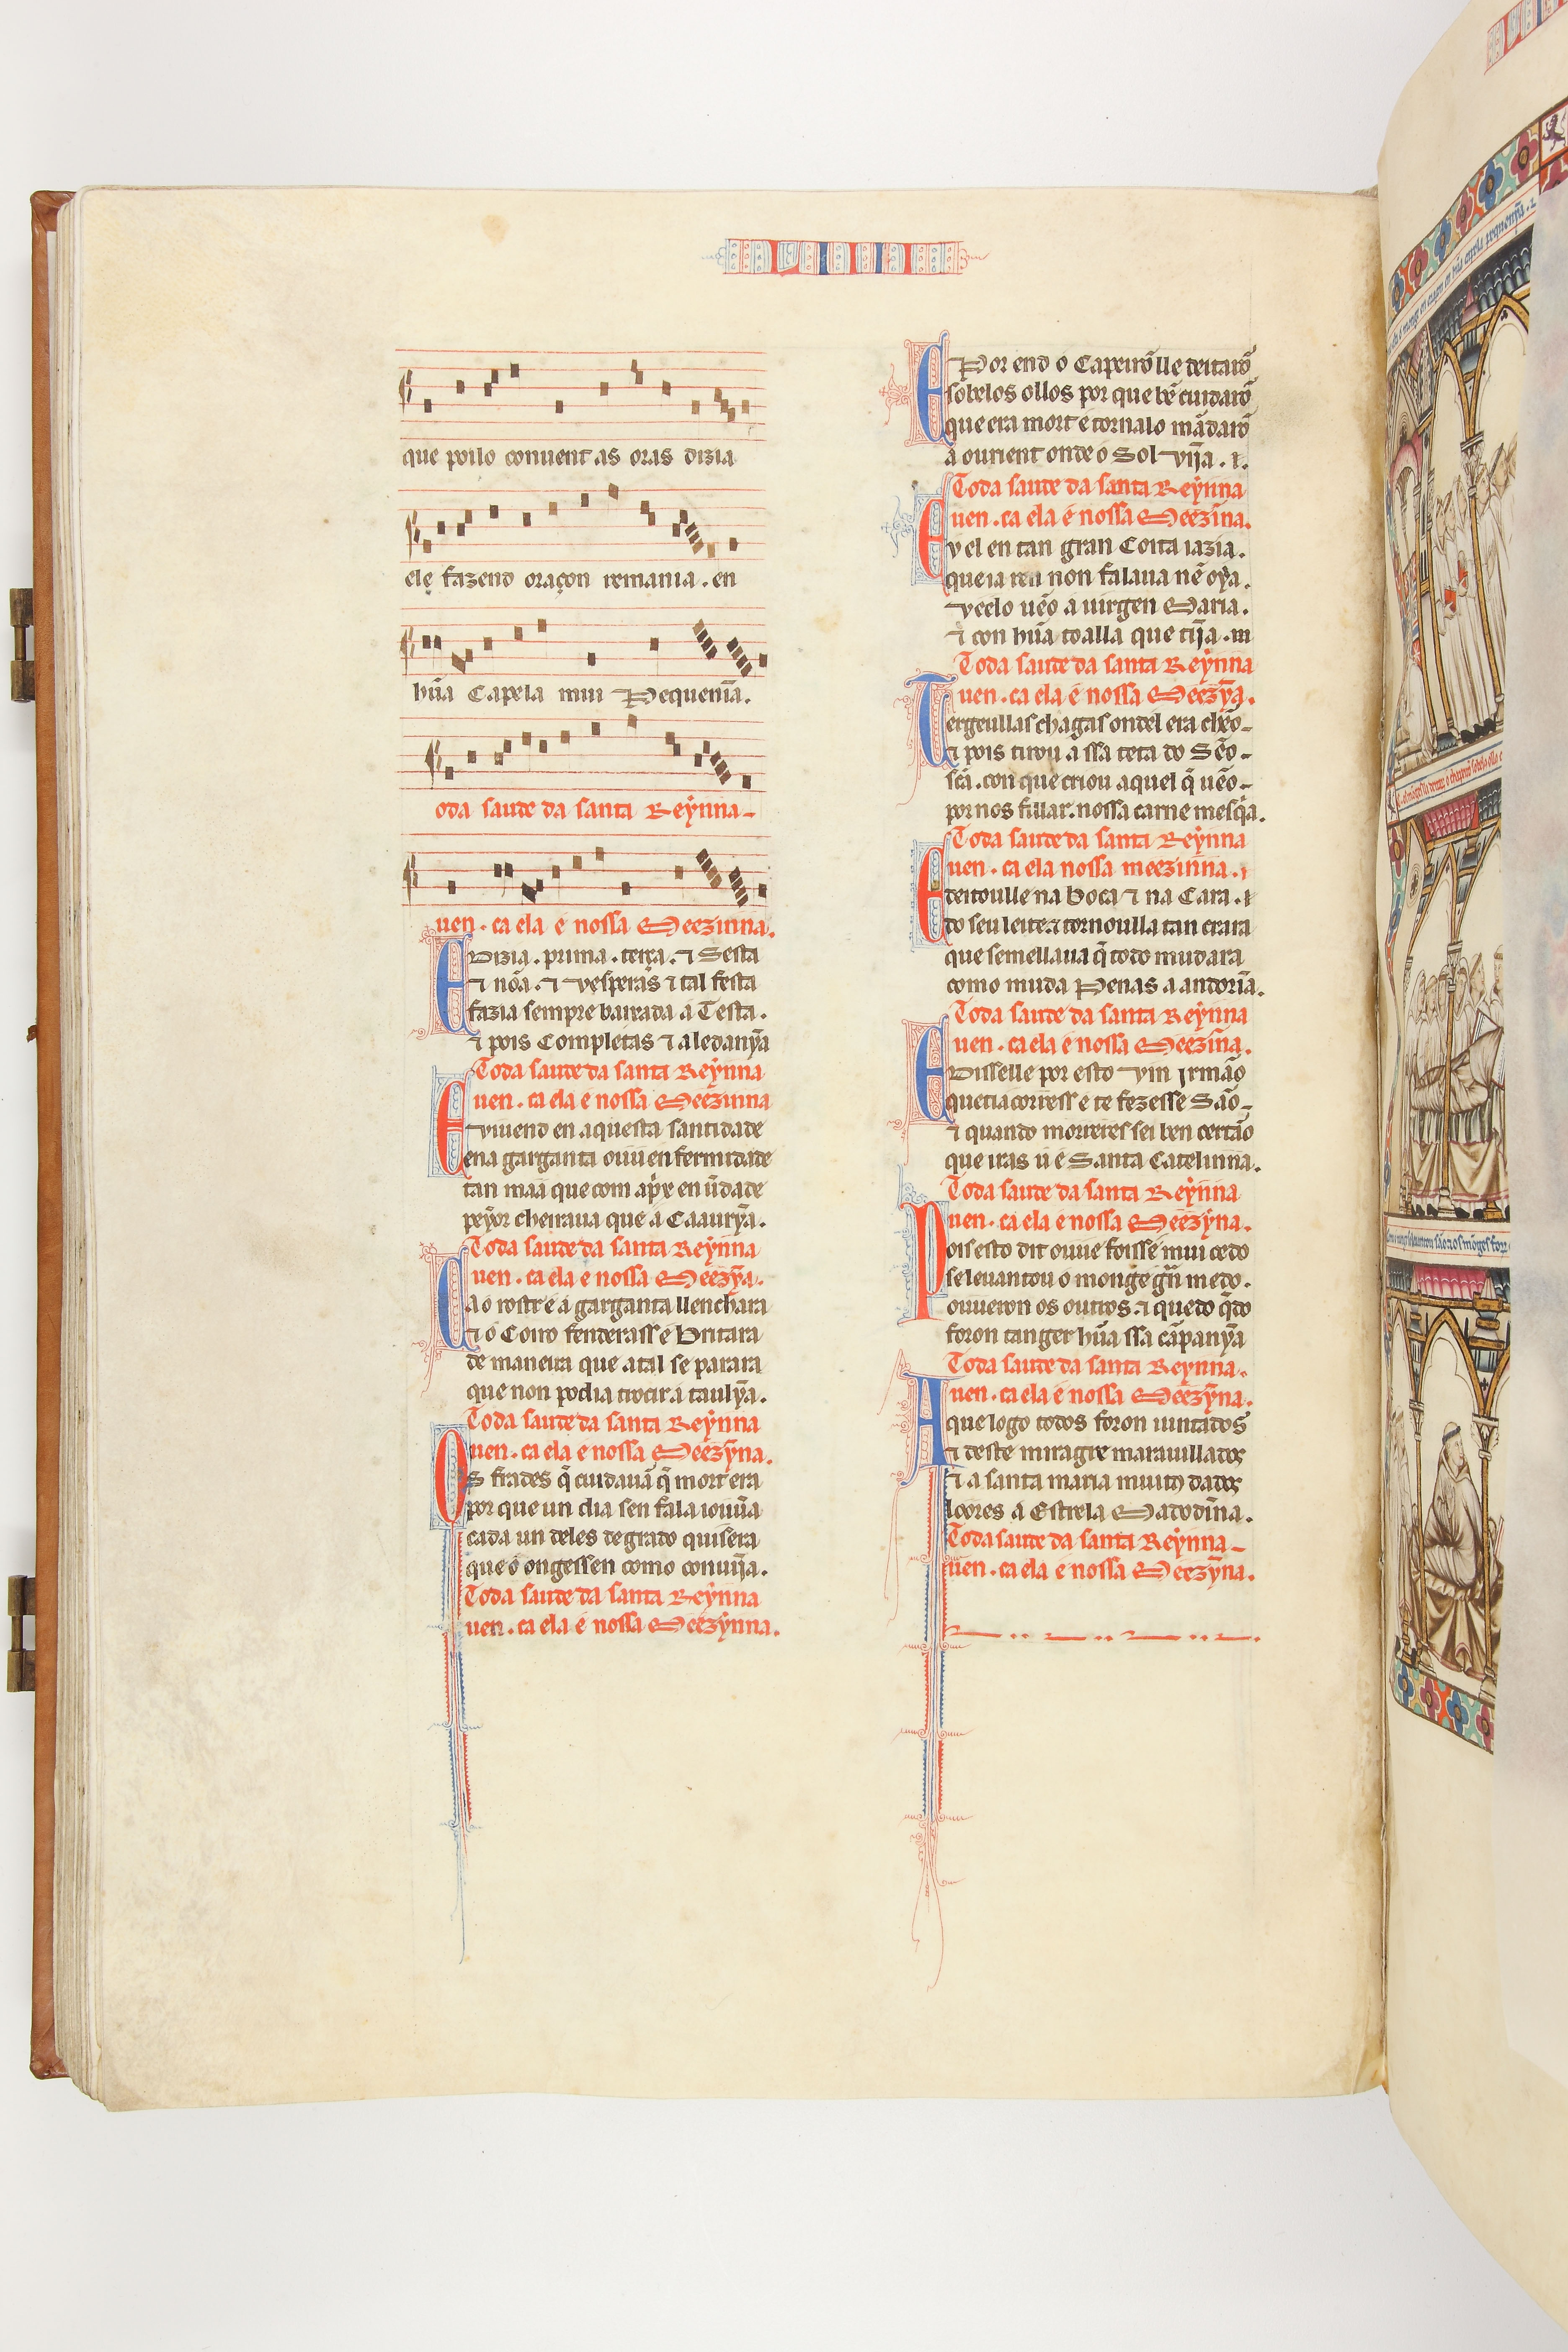 LIIII
que poilo conuent as oras dizia
ele fazend oraçon remania . en
hũa Capela mui Pequenĩa.
oda saude da santa Reỹnna
uen . ca ela é nossa Meezinna.
E Dizia . prima . terça . ⁊ Sesta
⁊ nõa . ⁊ vesperas ⁊ tal festa
fazia sempre baixada a Testa .
⁊ pois Completas ⁊ a ledanỹa
Toda saude da santa Reỹnna
uen . ca ela é nossa Meezinna
E viuend en aquesta santidade
ena garganta ouu enfermidade
tan maa que com apʼx en ũdade
peỹor cheiraua que a Caaurỹa .
Toda saude da santa Reỹnna
uen . ca ela é nossa Meezỹa .
Ca o rostr e a garganta ll enchara
⁊ o Coiro fenderass e Britara
de maneira que atal se parara
que non podia trocir a taulỹa .
Toda saude da santa Reỹnna
uen . ca ela é nossa Meezỹna .
Os frades q̃ cuidauã q̃ mort era
por que un dia sen fala iouuᵉa
cada un deles de grado quisera
que o ongessen como conuĩja .
Toda saude da santa Reỹnna
uen . ca ela é nossa Meezỹnna .
E Por end o Capeirõ lle deitarõ
sobelos ollos por que bẽ cuidarõ
que era mort e tornalo mãdarõ
a ourient onde o Sol vĩja .
Toda saude da santa Reỹnna
uen . ca ela é nossa Meezĩna.
E v el en tan gran Coita iazia .
que ia ren non falaua nẽ oỹa .
veelo uẽo a uirgen Maria .
⁊ con hũa toalla que tĩja .
Toda saude da santa Reỹnna
uen . ca ela é nossa Meezỹa.
Tergeullas chagas ond el era chẽo
⁊ pois tirou a ssa teta do Sẽo
scã . con que criou aquel q̃ uẽo
por nos fillar . nossa carne mesq̃a.
Toda saude da santa Reỹnna
uen . ca ela nossa meezinna .
E deitoulle na boca ⁊ na Cara .
do seu leite . ⁊ tornoulla tan crara
que semellaua q̃ todo mudara
como muda Penas a andorĩa .
Toda saude da santa Reỹnna
uen . ca ela é nossa Meezĩna .
E Disselle por esto vin jrmão
que ti acorress e te fezesse São
⁊ quando morreres sei ben certão
que iras u é Santa Catelinna .
Toda saude da santa Reỹnna
uen . ca ela é nossa Meezỹna .
Pois esto dit ouue foisse mui cedo
se leuantou o monge grã medo .
ouueron os outros . ⁊ quedo q̃do
foron tanger hũa ssa cãpanỹa
Toda saude da santa Reỹnna .
uen . ca ela é nossa Meezỹna .
A que logo todos foron iuntados
⁊ deste miragre marauillados
⁊ a santa maria muito dados
loores a Estrela Madodĩna .
Toda saude da santa Reỹnna
uen . ca ela é nossa Meezỹna .